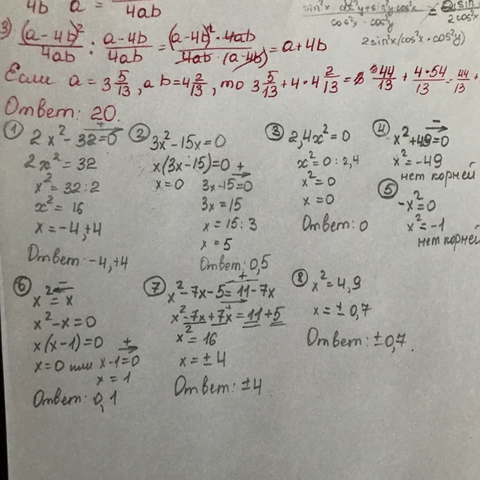 4b a 4ab
3) (a-4b)²/4ab : (a-4b)/4ab = (a-4b)²·4ab / 4ab·(a-4b) = a+4b
Если a = 3 5/13, а b = 4 2/13, то 3 5/13 + 4·4 2/13 = 44/13 + 4·54/13 = 44/13 +
Ответ: 20.
① 2x²-32=0
2x²=32
x²=32:2
x²=16
x=-4,+4
Ответ: -4,+4
② 3x²-15x=0
x(3x-15)=0
x=0 3x-15=0
3x=15
x=15:3
x=5
Ответ: 0,5
③ 2,4x²=0
x²=0:2,4
x²=0
x=0
Ответ: 0
④ x²+49=0
x²=-49
нет корней
⑤ -x²=0
x²=-1
нет корней
⑥ x²=x
x²-x=0
x(x-1)=0
x=0 или x-1=0
x=1
Ответ: 0,1
⑦ x²-7x-5=11-7x
x²-7x+7x=11+5
x²=16
x=±4
Ответ: ±4
⑧ x²=4,9
x=±0,7
Ответ: ±0,7.